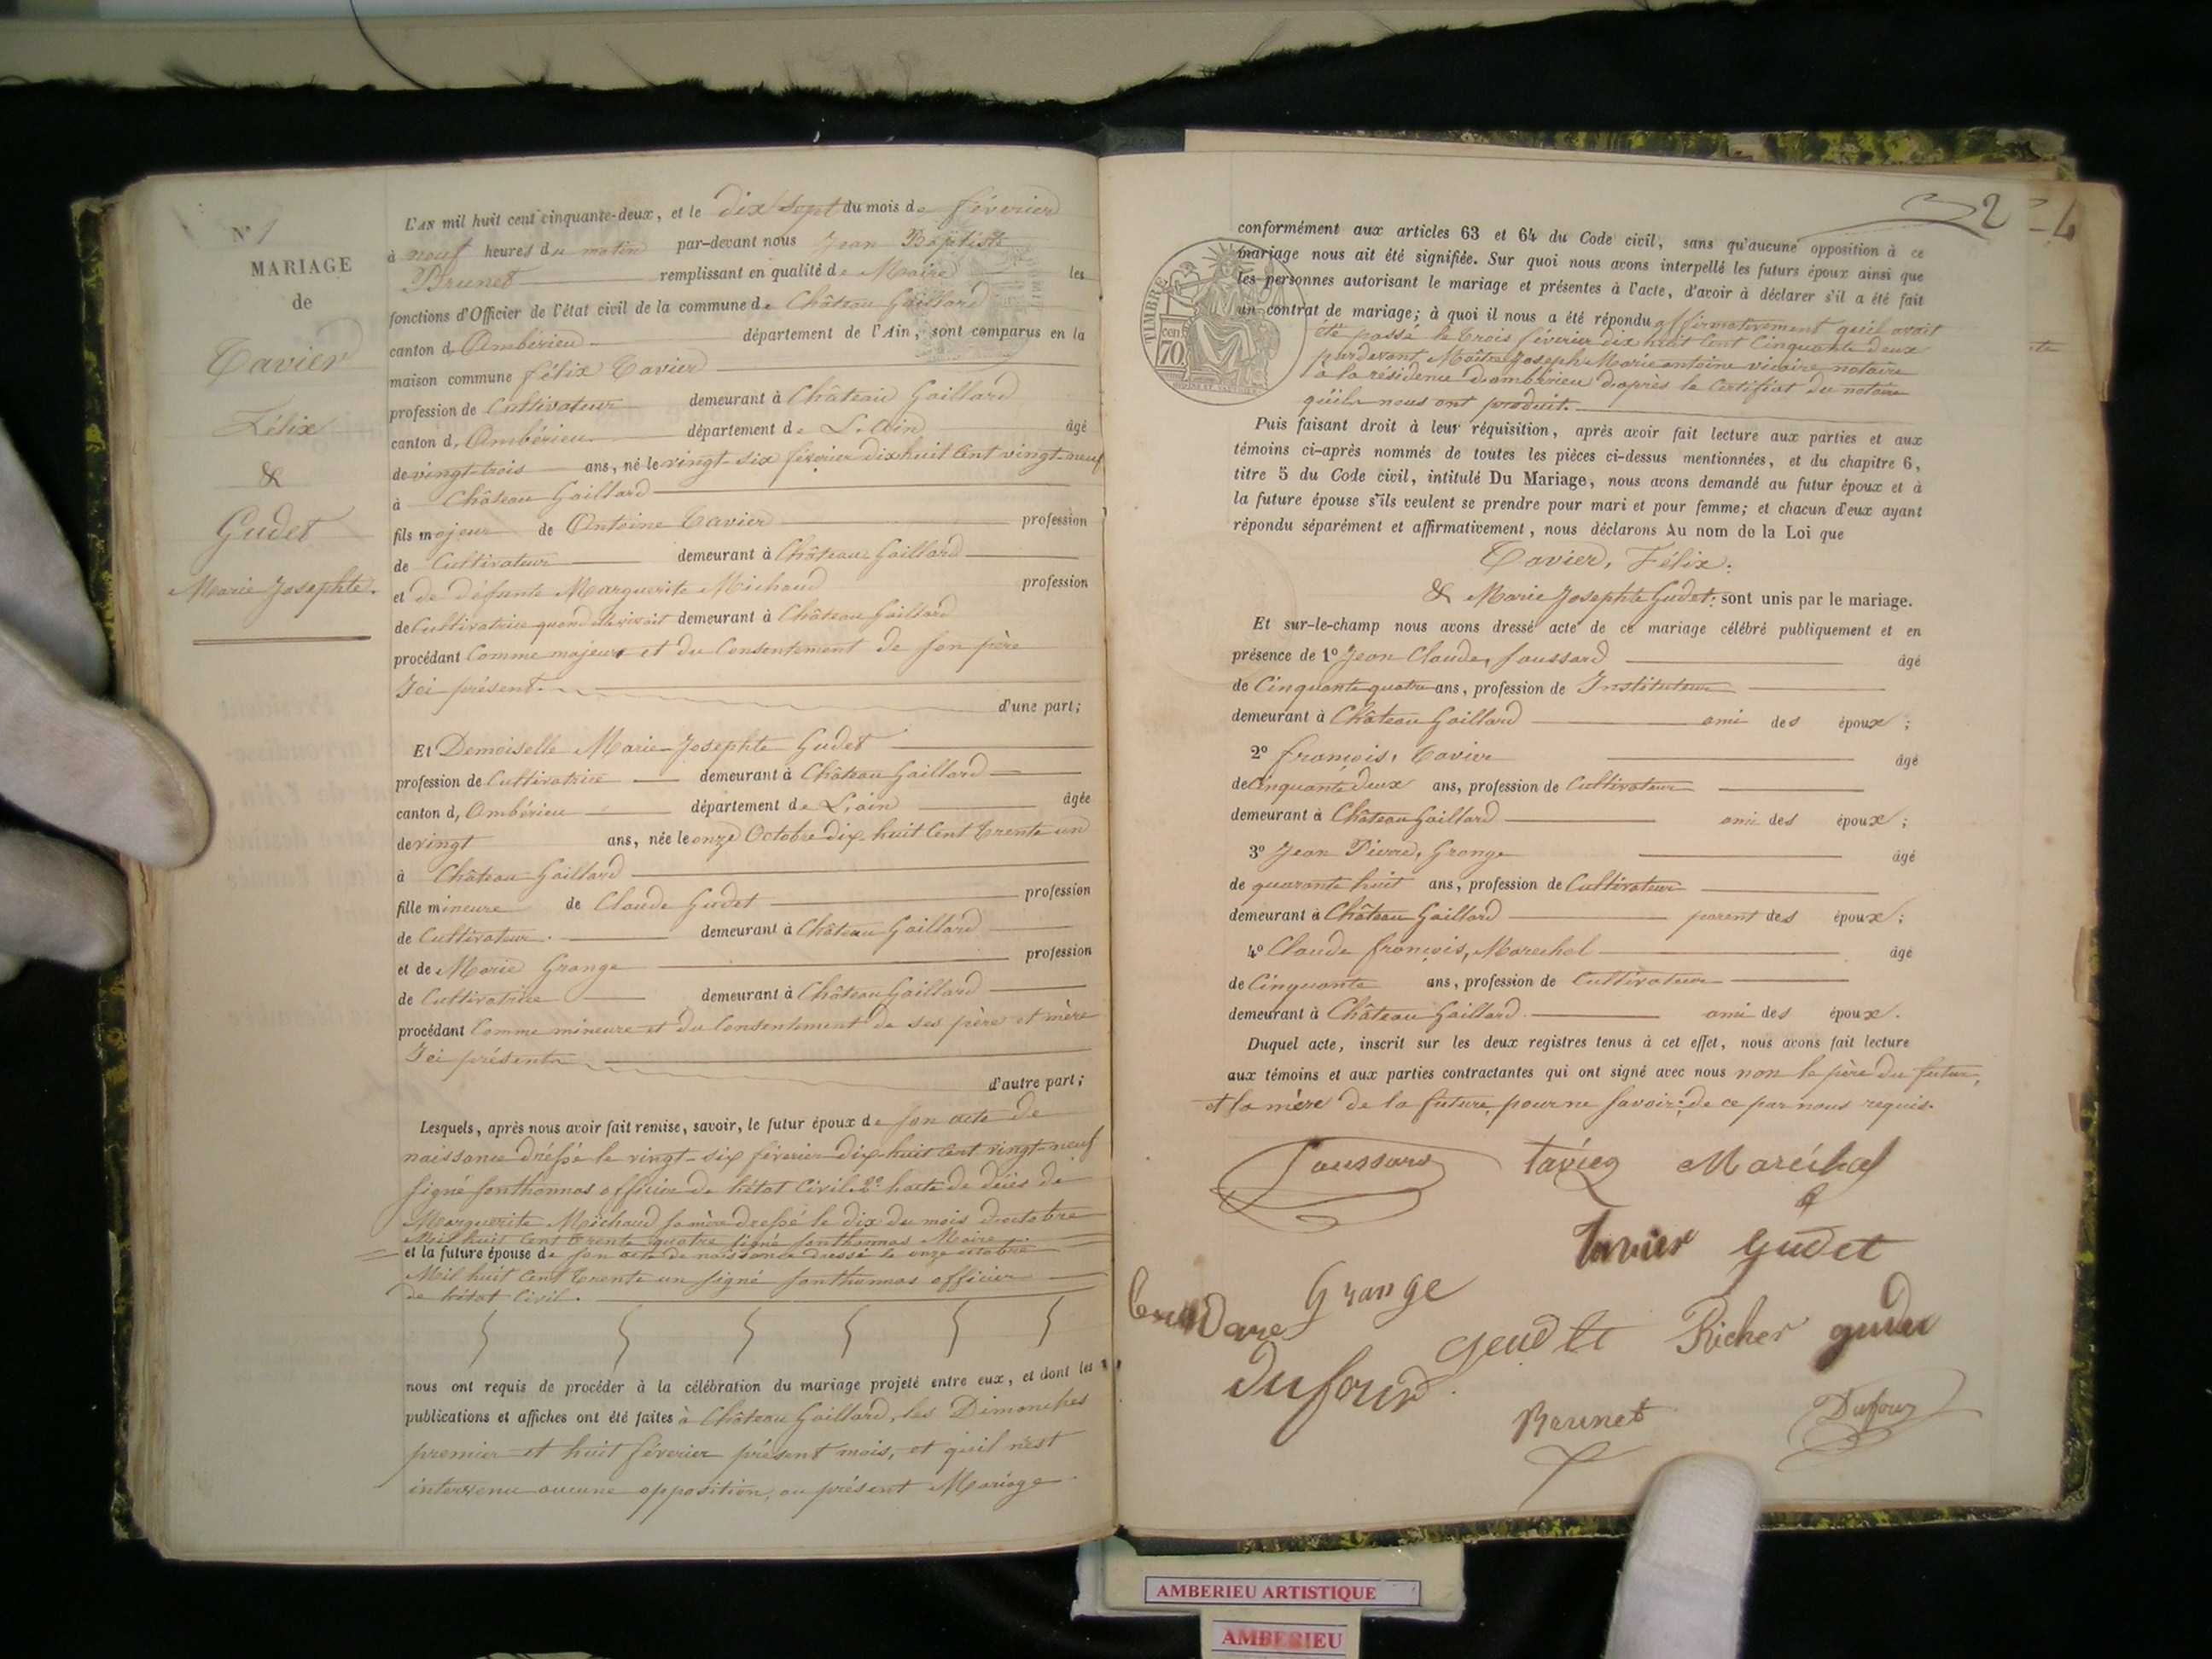 N° 1
MARIAGE
de
Tavier
Félix
&
Gudet
Marie Josephte.
L'AN mil huit cent cinquante-deux, et le dix sept du mois de féverier
à neuf heures du matin par-devant nous Jean Baptiste
Brunet remplissant en qualité de Maire les
fonctions d'Officier de l'état civil de la commune de Château Gaillard
canton d, Ambérieu département de l'Ain, sont comparus en la
maison commune félix Tavier
profession de Cultivateur demeurant à Château Gaillard
canton d, Ambérieu département de L'ain âgé
de vingt-trois ans, né le vingt-six féverier dix huit Cent vingt-neuf
à Château Gaillard
fils majeur de Antoine Tavier profession
de Cultivateur demeurant à Château Gaillard
et de défunte Marguerite Michaud profession
de Cultivatrice quand elle vivait demeurant à Château Gaillard
procédant Comme majeur et du Consentement de son père
Ici présent.
d'une part;
Et Demoiselle Marie Josephte Gudet
profession de Cultivatrice demeurant à Château Gaillard
canton d, Ambérieu département de L'ain âgée
de vingt ans, née le onze Octobre dix-huit Cent trente un
à Château Gaillard
fille mineure de Claude Gudet profession
de Cultivateur. demeurant à Château Gaillard
et de Marie Grange profession
de Cultivatrice demeurant à Château Gaillard
procédant Comme mineure et du Consentement de ses père et mère
Ici présents
d'autre part;
Lesquels, après nous avoir fait remise, savoir, le futur époux de son acte de
naissance dressé le vingt-six féverier dix-huit Cent vingt-neuf
signé fonthonnas officier de l'étot Civil. 2° l'acte de décès de
Marguerite Michaud sa mère dressé le dix du mois d'octobre
Mil huit Cent trente quatre signé fonthonnas Maire
et la future épouse de son acte de naissance dressé le onze octobre
Mil huit Cent trente un signé fonthonnas officier
de l'étot Civil.
nous ont requis de procéder à la célébration du mariage projeté entre eux, et dont les
publications et affiches ont été faites à Château Gaillard, les Dimanches
premier et huit féverier présent mois, et qu'il n'est
intervenu aucune opposition, au présent Mariage.
2
TIMBRE
cen
70
conformément aux articles 63 et 64 du Code civil, sans qu'aucune opposition à ce
mariage nous ait été signifiée. Sur quoi nous avons interpellé les futurs époux ainsi que
les personnes autorisant le mariage et présentes à l'acte, d'avoir à déclarer s'il a été fait
un contrat de mariage; à quoi il nous a été répondu affirmativement qu'il avait
été passé le trois féverier dix huit Cent Cinquante deux
pardevant Maître Joseph Marie antoine vicaire notaire
à la résidence d'ambérieu d'après le Certifiat du notaire
qu'ils nous ont produit.
Puis faisant droit à leur réquisition, après avoir fait lecture aux parties et aux
témoins ci-après nommés de toutes les pièces ci-dessus mentionnées, et du chapitre 6,
titre 5 du Code civil, intitulé Du Mariage, nous avons demandé au futur époux et à
la future épouse s'ils veulent se prendre pour mari et pour femme; et chacun d'eux ayant
répondu séparément et affirmativement, nous déclarons Au nom de la Loi que
Tavier, Félix.
& Marie Josephte Gudet. sont unis par le mariage.
Et sur-le-champ nous avons dressé acte de ce mariage célébré publiquement et en
présence de 1° Jean Claude, Joussard âgé
de Cinquante quatre ans, profession de Instituteur
demeurant à Château Gaillard ami des époux;
2° françois, Tavier âgé
de Cinquante deux ans, profession de Cultivateur
demeurant à Château Gaillard ami des époux;
3° Jean Grange âgé
de quarante huit ans, profession de Cultivateur
demeurant à Château Gaillard parent des époux;
4° Claude françois, Marechal âgé
de Cinquante ans, profession de Cultivateur
demeurant à Château Gaillard ami des époux.
Duquel acte, inscrit sur les deux registres tenus à cet effet, nous avons fait lecture
aux témoins et aux parties contractantes qui ont signé avec nous non le père du futur,
et la mère de la future, pour ne savoir; de ce par nous requis.
Joussard Maréchal
Tavier Gudet
Grange
Richer
Dufour
Brunet Dufour
AMBERIEU ARTISTIQUE
AMBERIEU